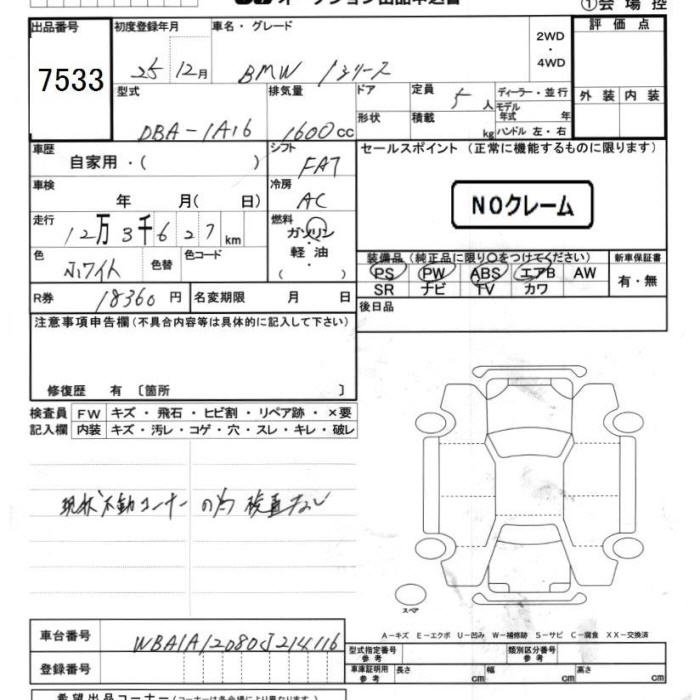 オークション出品申込書
①会場控
出品番号 初度登録年月 車名・グレード 評価点
7533 25 12月 BMW 1シリーズ 2WD・4WD
型式 排気量 ドア 定員 ディーラー・並行 外装 内装
DBA-1A16 1600cc 5人 モデル年式 年
形状 積載 kg ハンドル 左・右
車歴 シフト セールスポイント (正常に機能するものに限ります)
自家用・( ) FAT
車検 冷房 NOクレーム
年 月( 日) AC
走行 燃料
12万3千627km ガソリン
軽油
( )
色 色替 色コード 装備品(純正品に限り○をつけてください) 新車保証書
ホワイト PS PW ABS エアB AW 有・無
SR ナビ TV カワ
R券 18360円 名変期限 月 日 後日品
注意事項申告欄(不具合内容等は具体的に記入して下さい)
修復歴 有〔箇所 〕
検査員 FW キズ・飛石・ヒビ割・リペア跡・×要
記入欄 内装 キズ・汚レ・コゲ・穴・スレ・キレ・破レ
現状 不動コーナーの為 検査なし
スペア
A-キズ E-エクボ U-凹み W-補修跡 S-サビ C-腐食 XX-交換済
車台番号 WBA1A12080J214116
型式指定番号 参考 類別区分番号 参考
登録番号 車庫証明用 参考 長さ cm 幅 cm 高さ cm
希望出品コーナー(コーナーは各会場により異なります)